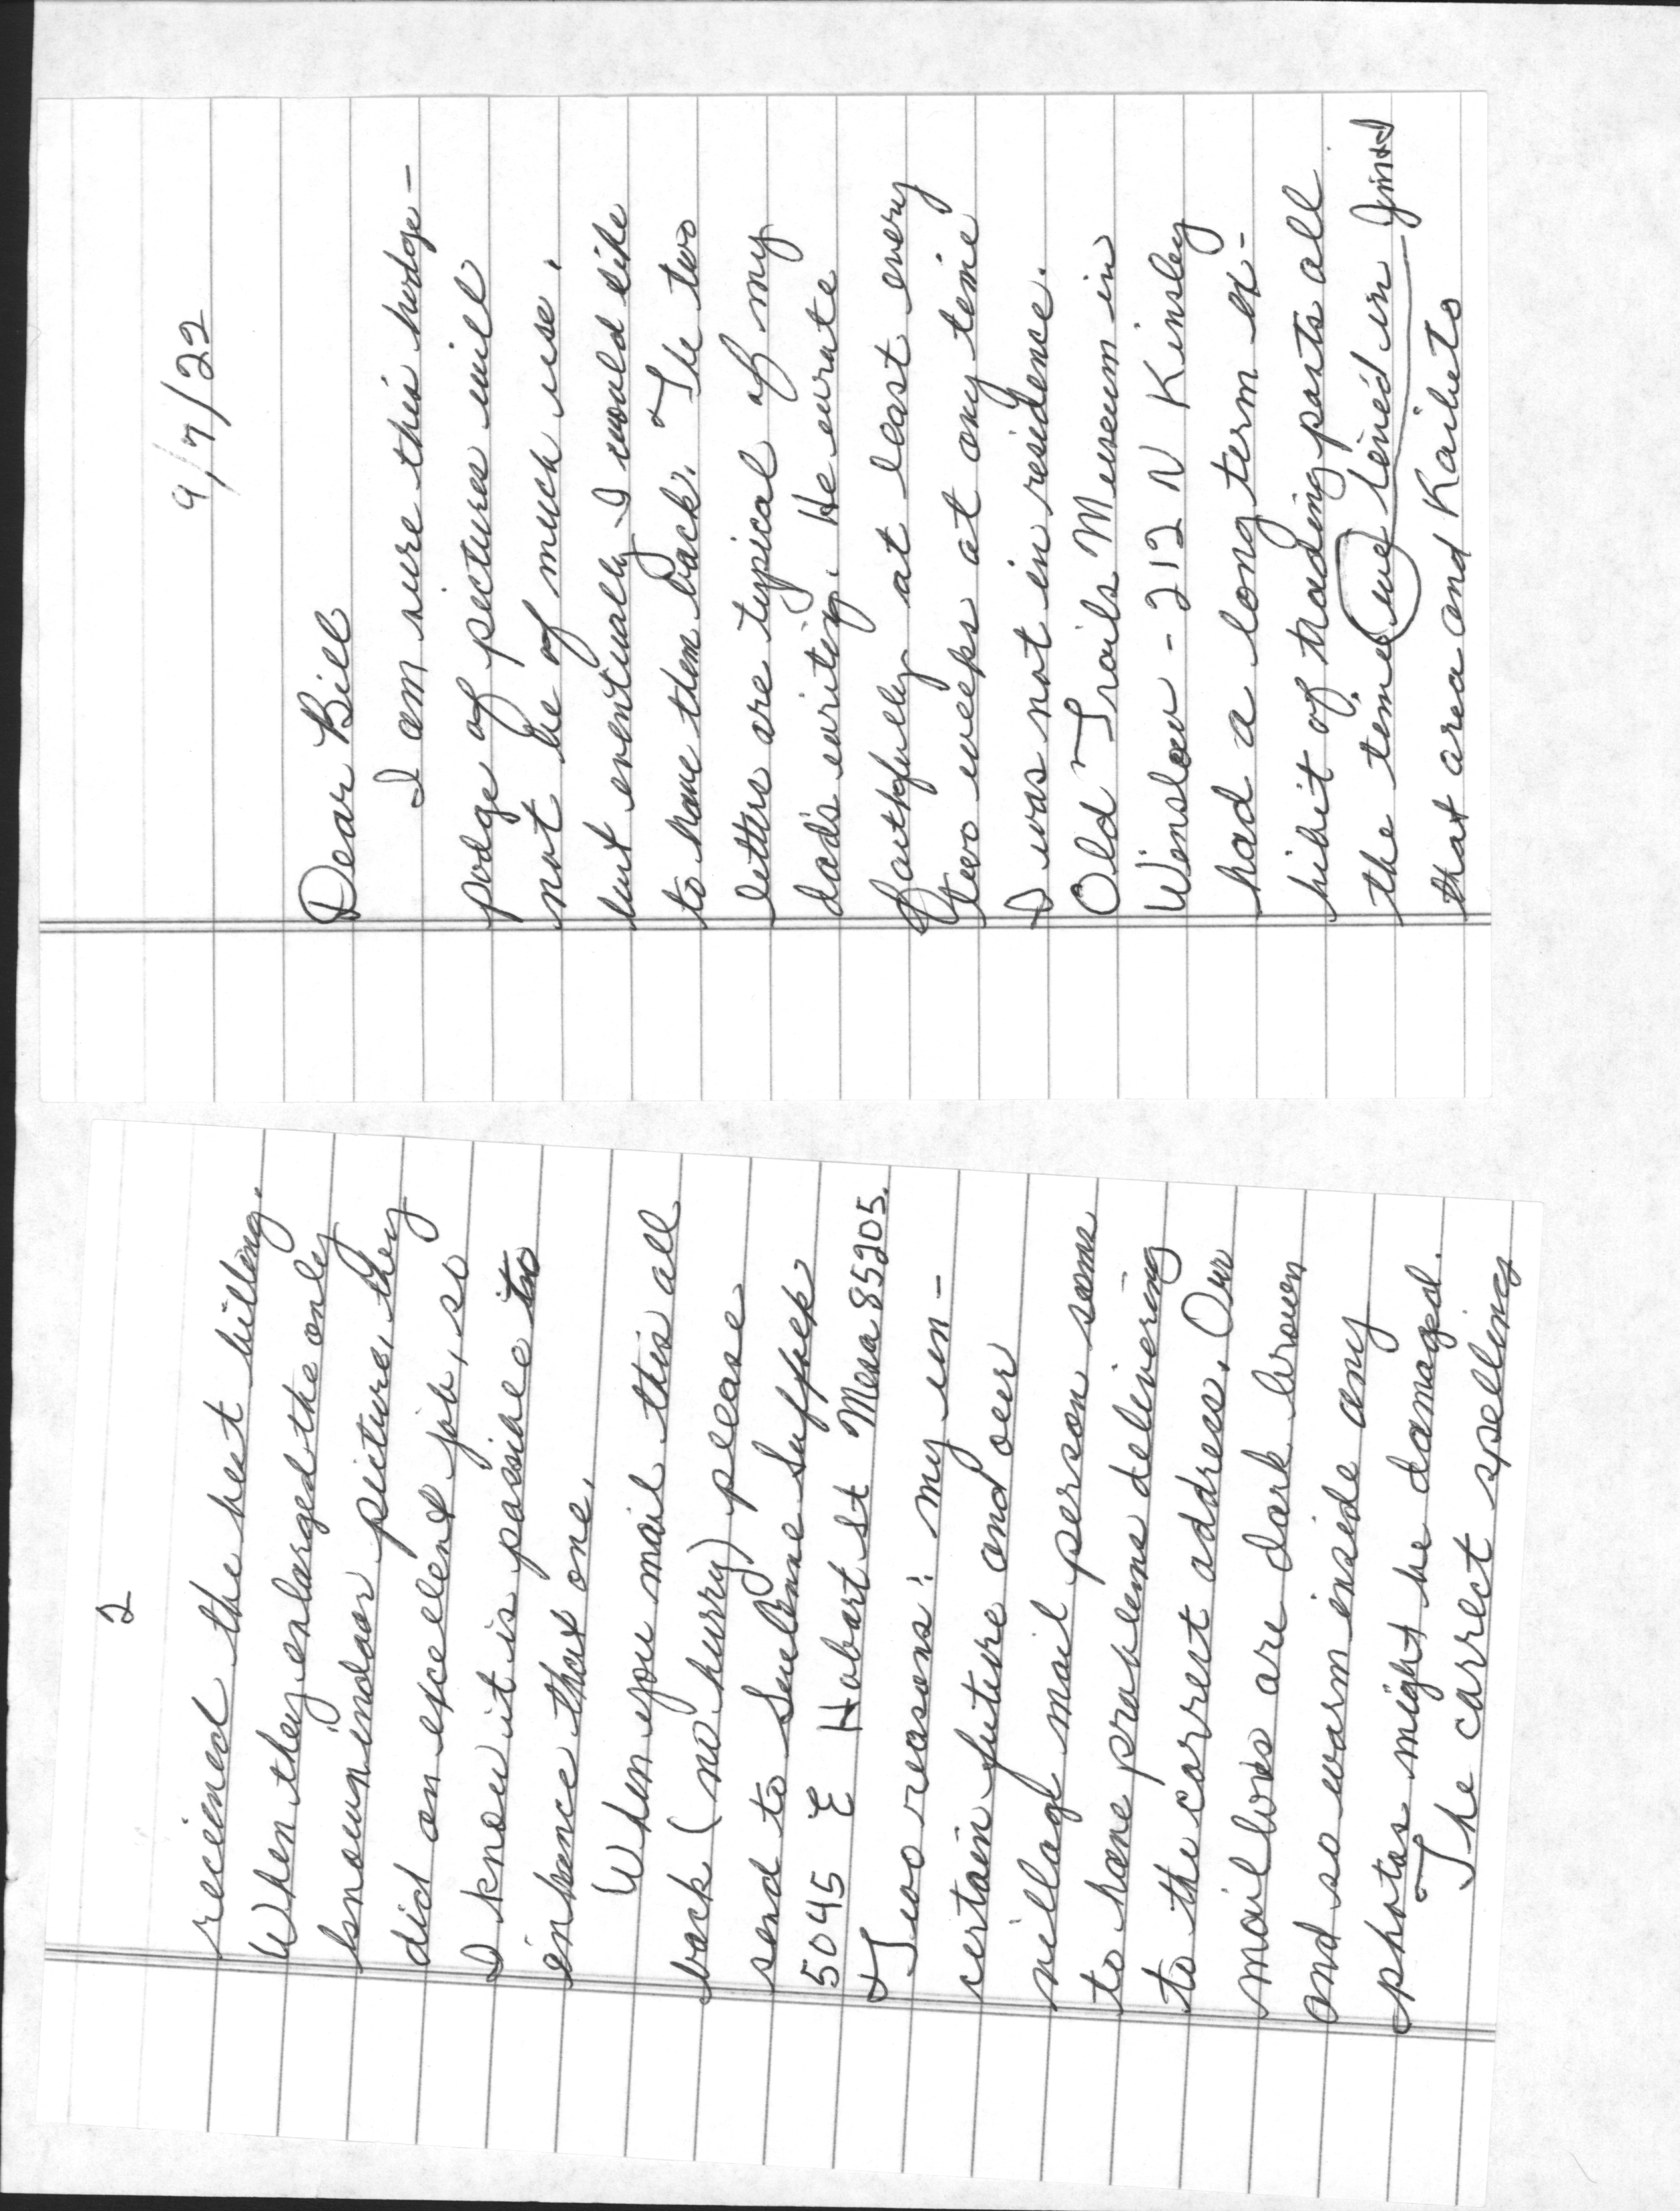 9/7/22
Dear Bill
I am sure this hodge-
podge of pictures will
not be of much use.
but eventually I would like
to have them back. The two
letters are typical of my
dads writing. He wrote
faithfully at least every
two weeks at any time
I was not in residence.
Old Trails Museum in
Winslow - 212 N Kinsley
had a long term ex-
hibit of trading posts all
the time we lived in Joint
that area and Kaibeto
2
received the best billing.
When they enlarged the only
known indoor picture, they
did an excelent job, so
I know it is possible to
enhance that one.
When you mail this all
back (no hurry) please
send to SueLene
5045 E Hobart St Mesa 85205.
Two reasons: my un-
certain future and our
village mail person seems
to have problems delivering
to the correct address. Our
mail boxes are dark brown
and so warm inside any
photos might be damaged.
The correct spelling